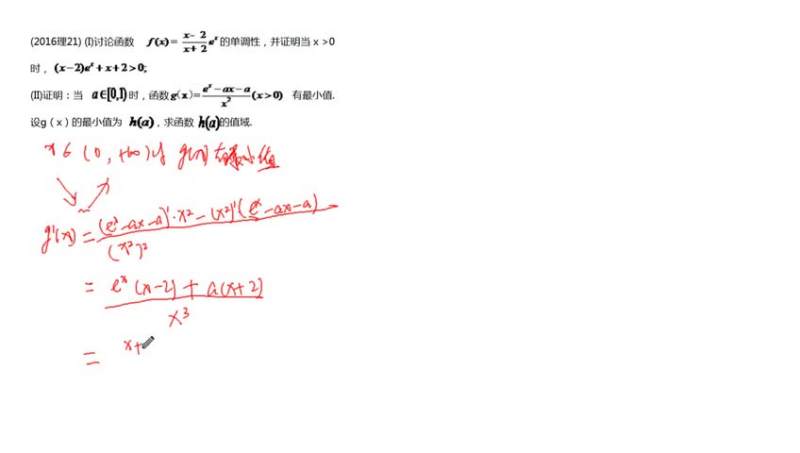 (2016理21) (I)讨论函数 f(x)= (x-2)/(x+2) eˣ 的单调性，并证明当 x >0
时，(x-2)eˣ+x+2>0;
(II)证明：当 a∈[0,1) 时，函数 g(x)= (eˣ-ax-a)/x² (x>0) 有最小值.
设g（x）的最小值为 h(a)，求函数 h(a)的值域.
x∈(0,+∞)时 g(x)有最小值
g'(x) = ((eˣ-ax-a)'·x²-(x²)'(eˣ-ax-a))/(x²)²
= (eˣ(x-2)+a(x+2))/x³
= x+